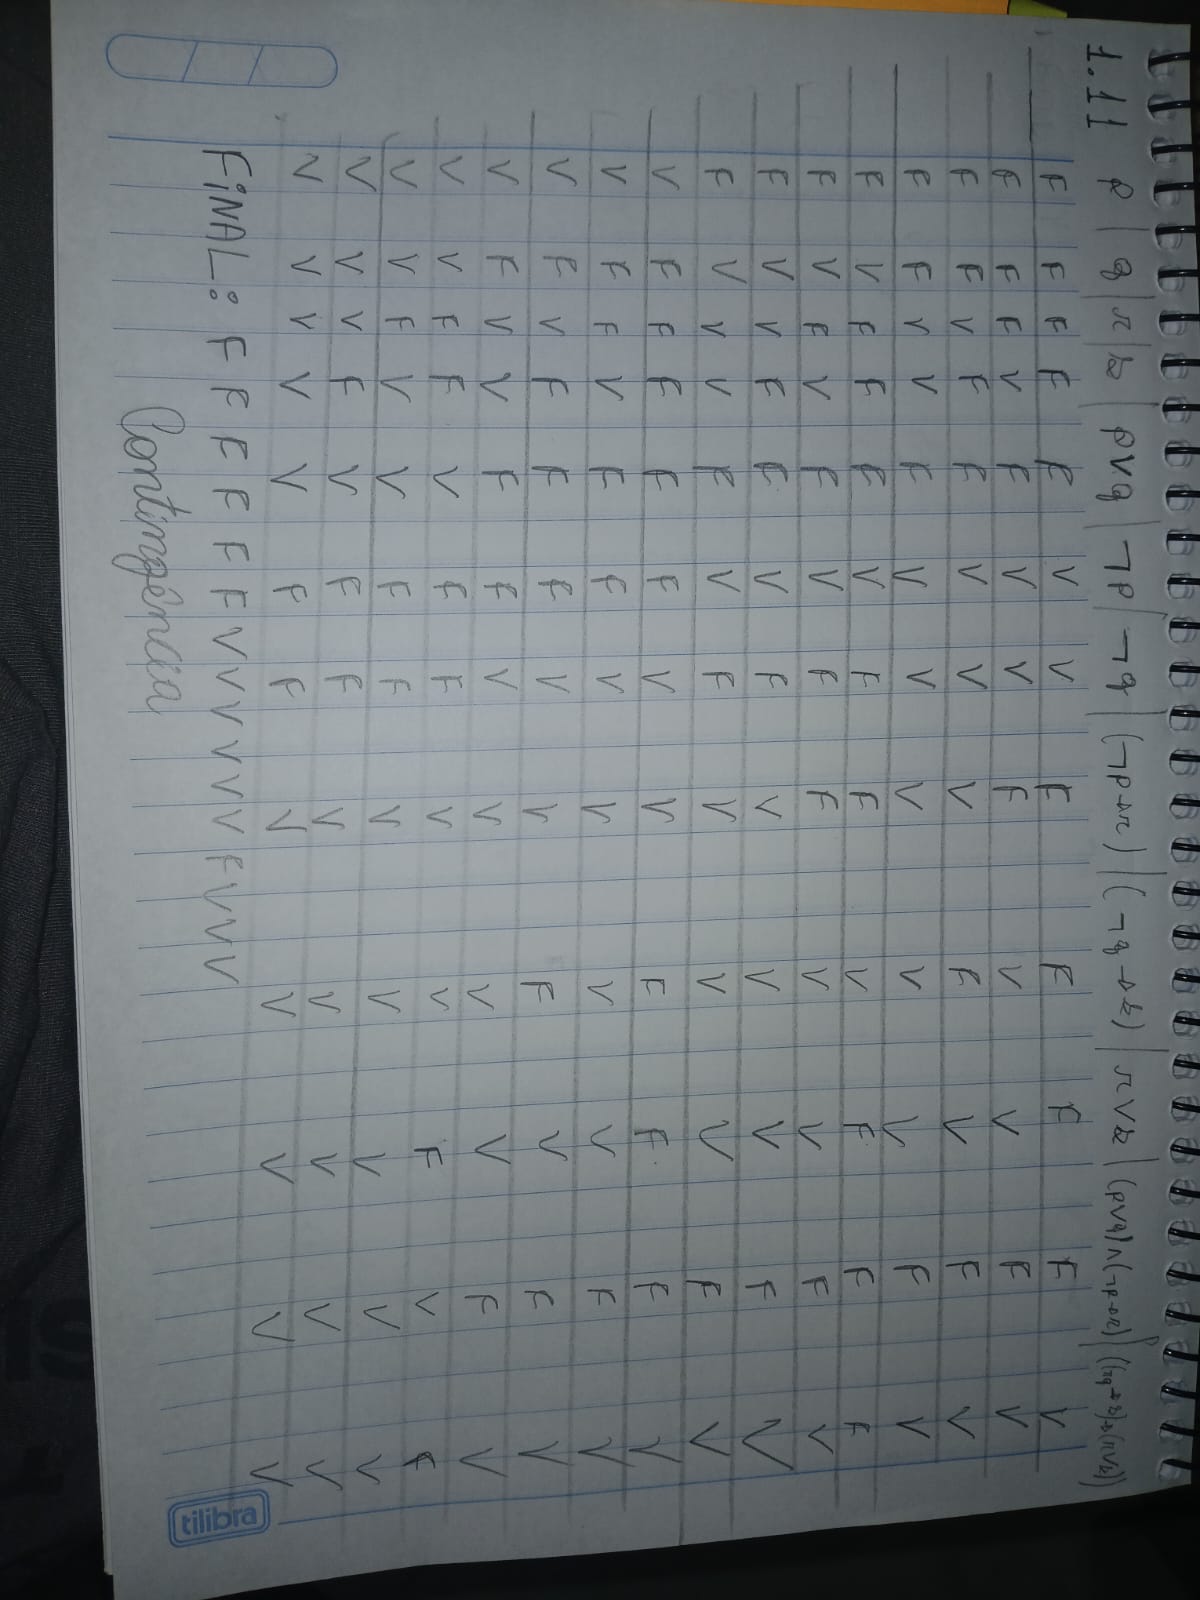 1.11 p q r s p∨q ¬p ¬q (¬p→r) (¬q→s) r∨s (p∨q)∧(¬p→r) ((¬q→s)→(r∨s))
F F F F F V V F F F F V
F F F V F V V F V V F V
F F V F F V V V F V F V
F F V V F V V V V V F V
F V F F F V F F V F F F
F V F V F V F F V V F V
F V V F F V F V V V F V
F V V V F V F V V V F V
V F F F F F V V F F F V
V F F V F F V V V V F V
V F V F F F V V F V F V
V F V V F F V V V V F V
V V F F V F F V V F V F
V V F V V F F V V V V V
V V V F V F F V V V V V
V V V V V F F V V V V V
FiNAL: F F F F F F V V V V V V F V V V
Contingência
tilibra